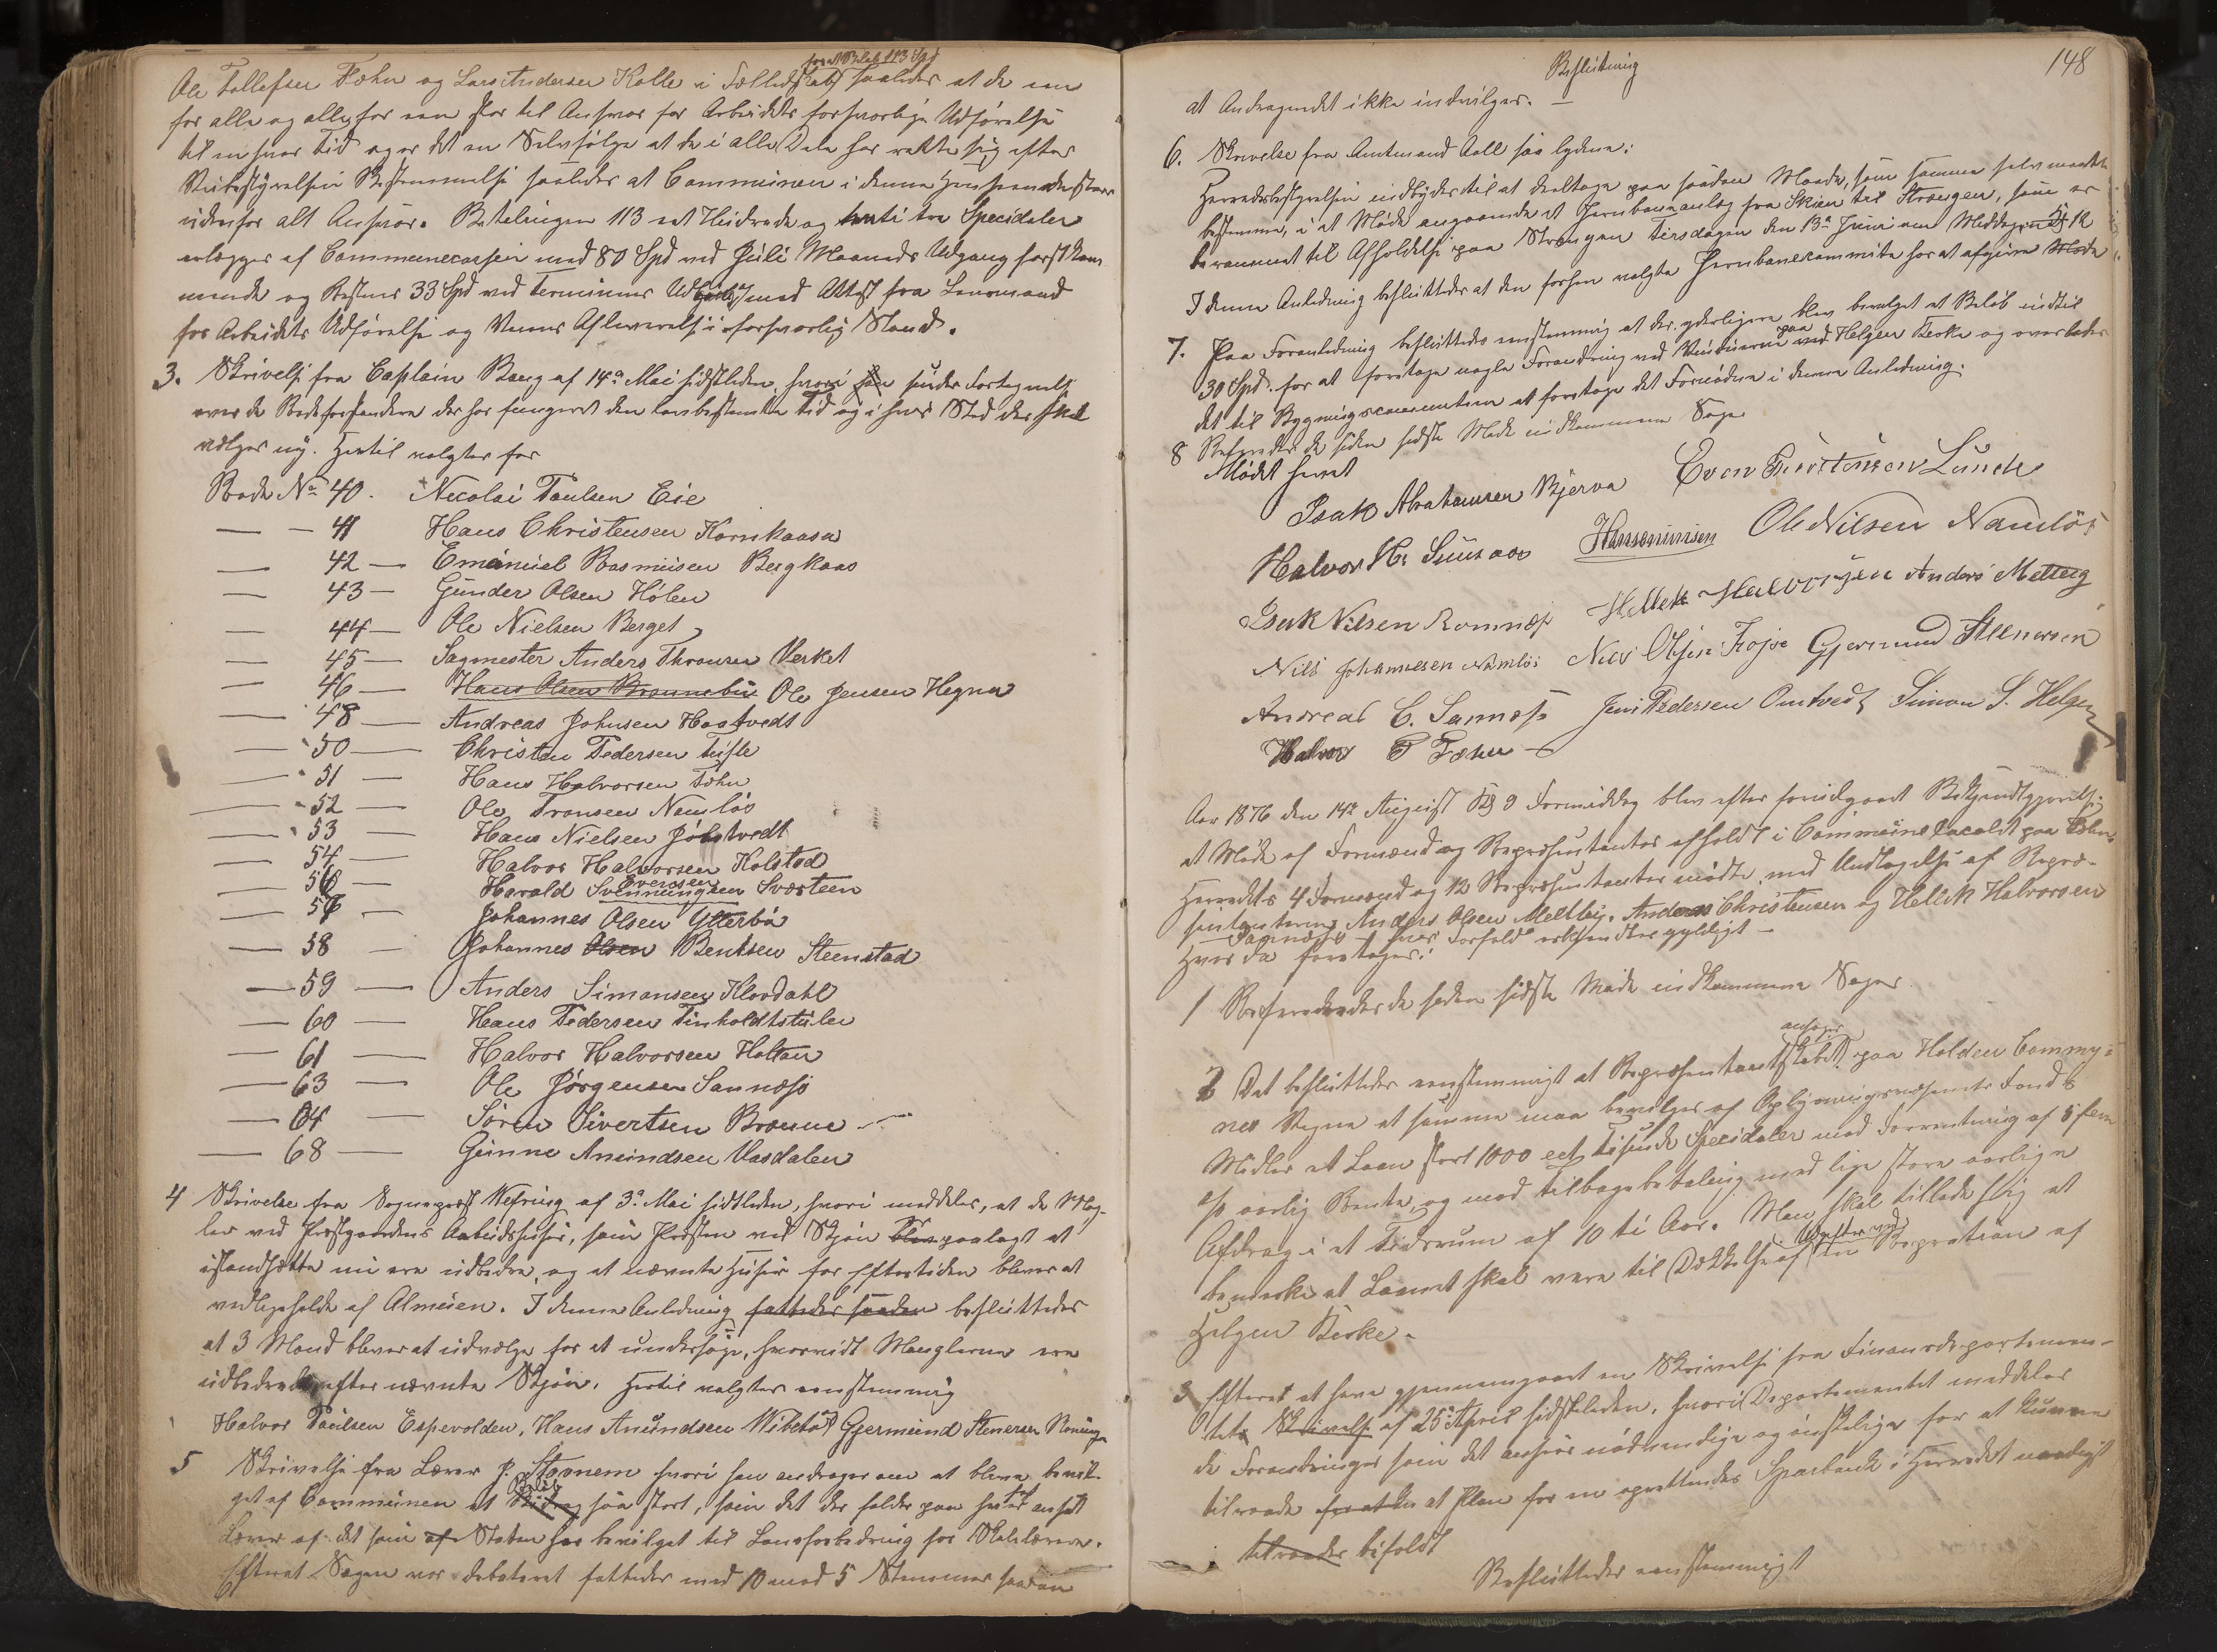 for et Beløb 113 Spd
Ole Tollefsen Fæhn og Lars Andersen Kolle i Fælledskab saaledes at de een
for alle og alle for een staar til Ansvar for Arbeidets forsvarlige Udførelse
til enhver Tid og er det en Selvfølge at de i alle Dele har rette sig efter
Veibestyrelsens Bestemmelse saaledes at Communen i denne Henseende staar
udenfor alt Ansvar. Betalingen 113 eet Hundrede og tretten Specidaler
erlægges af Communecassen med 80 Spd ved Juli Maaneds Udgang førstkom
mende og Resten 33 Spd ved Terminens Udløb mod Attest fra Lensmand
for Arbeidets Udførelse og Veiens Aflevering i forsvarlig Stand.
3. Skrivelse fra Captain Bang af 14de Mai sidstleden, hvori han sender Fortegnelse
over de Rodeforstandere der har fungeret den lovbestemte Tid og i hvis Sted der skal
vælges ny. Hertil valgtes for
Rode No 40. Nicolai Paulsen Eie
— — 41 Hans Christensen Kornkaasa
— 42 — Emanuel Rasmusen Bergkaas
— 43 — Gunder Olsen Hølen
— 44 — Ole Nielsen Berget
— 45 — Sagmester Anders Thronsen Verket
— 46 — Hans Olsen Brounebu Ole Jensen Hegna
— 48 — Andreas Johnsen Haatvedt
— 50 — Christen Pedersen Tufte
— 51 — Hans Halvorsen Fæhn
— 52 — Ole Tronsen Namløs
— 53 — Hans Nielsen Jølstvedt
— 54 — Halvor Halvorsen Kolstad
— 56 — Harald Svenningsen Evensen Sværteen
— 57 — Johannes Olsen Ytterbø
— 58 — Johannes Olsen Bentsen Steenstad
— 59 — Anders Simonsen Klovdahl
— 60 — Hans Pedersen Tinholdtstulen
— 61 — Halvor Halvorsen Holtan
— 63 — Ole Jørgensen Sannæs
— 64 — Søren Sivertsen Broune
— 68 — Gunne Amundsen Vasdalen
4 Skrivelse fra Sognepræst Wefring af 3de Mai sidstleden, hvori meddeles, at de Mang-
ler ved Præstgaardens Aabodshuse, som Præsten ved Skjøn blev paalagt at
istandsætte nu ere udbedre, og at nævnte Huse for Eftertiden bliver at
vedligeholde af Almuen. I denne Anledning fattedes saadan besluttedes
at 3 Mænd bliver at udvælge for at undersøge, hvorvidt Manglerne ere
udbedrede efter nævnte Skjøn. Hertil valgtes eenstemmig
Halvor Paulsen Espevolden, Hans Amundsen Wibeto og Gjermund Stenersen Roninge
5 Skrivelse fra Lærer J. Stovnem hvori han andrager om at blive bevil-
get af Communen et Bidrag Beløb saa stort, som det der falder paa hver ansat
Lærer af det som af Staten har bevilget til Lønsforbedring for Skolelærere.
Efterat Sagen var debateret fattedes med 10 mod 5 Stemmer saadan
148
Beslutning
at Andragendet ikke indvilges. —
6. Skrivelse fra Amtmand Aall saa lydene:
Herredsbestyrelsen indbydes til at deeltage paa saadan Maade, som samme selv maatte
bestemme, i et Møde angaaende et Jernbaneanlæg fra Skien til Strængen, som er
berammet til Afholdelse paa Strengen Tirsdagen den 13de Juni om Middagen Kl 12
I denne Anledning besluttedes at den forhen valgte Jernbanecommite har at afgive Møde
7. Paa Foranledning besluttedes eenstemmig at der yderligere blev bevilget et Beløb indtil
30 Spd. for at foretage nogle Forandring ved Vinduerne paa ved Helgen Kirke og overlades
det til Bygningscommiteen at foretage det Fornødne i denne Anledning.
8 Refereredes de siden sidste Møde indkommne Sager
Mødet hævet
Isak Abrahamsen Bjerva Even Torstensen Lunde
Halvor Hr Suusaas Hansenmisen Ole Nilsen Namløs
Isak Nilsen Romnæs Hellek Halvorsen Anders Melteig
Nils Johannesen Namløs Niels Olsen Frogse Gjermund Steenersen
Andreas C. Sannæss Jens Pedersen Omtvedt Simon S. Helgen
Halvor T Fæhn
Aar 1876 den 14de August Kl 9 Formiddag blev efter foreudgaaet Bekjendtgjørelse
et Møde af Formænd og Repræsentanter afholdt i Communelocalet paa Fæhn.
Herredets 4 Formænd og 12 Repræsentanter mødte med Undtagelse af Repræ-
sentanterne Anders Olsen Melteig, Anders Christensen og Hellek Halvorsen
Sannæs hvis Forfald erkjendtes gyldigt —
Hvorda foretoges:
1 Refereredes de seden sidste Møde indkommne Sager
2 Det besluttedes eenstemmigt at Repræsentantskabet ansøger paa Holden Commy-
nes Vegne at samme maa bevilges af Oplysningsvæsenets Fonds
Midler et Laan stort 1000 eet Tusinde Specidaler mod Forrentning af 5 fem
% aarlig Rente, og mod Tilbagebetaling med lige store aarlige
Afdrag i et Tidsrum af 10 ti Aar. Man skal tillade sig at
bemærke at Laanet skal være til Dækkelse af Udgifter ved en Repration af
Helgen Kirke.
3 Efterat at have gjennemgaaet en Skrivelse fra Finansdepartemen-
tets Skrivelse af 25de April sidstleden, hvori Departementet meddeler
de Forandringer som det anseer nødvendige og ønskelige for at kunne
tilraade for at den at Plan for en oprettendes Sparebank i Herredet naadigst
tilraades bifaldt
Besluttedes eenstemmigt